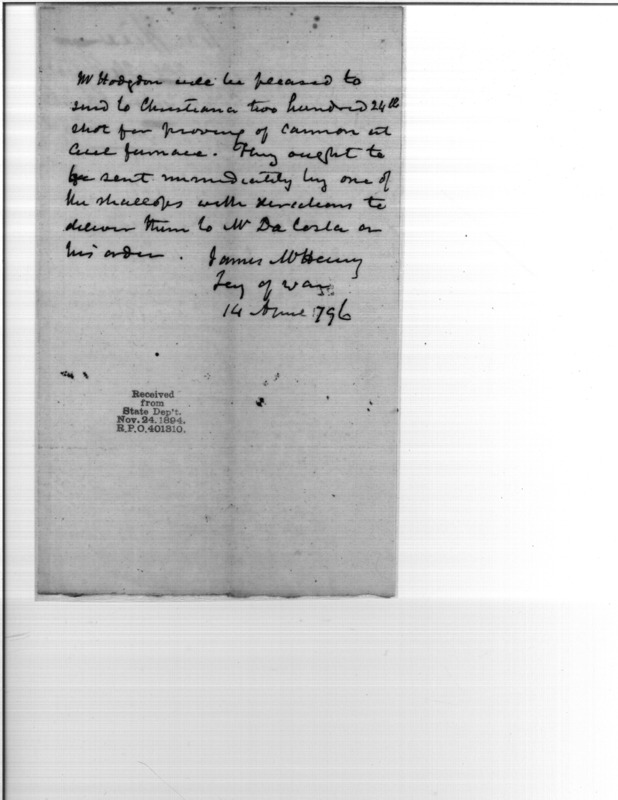 Mr Hodgdon will be pleased to
send to Christiana two hundred 24 lb
shot for proving of cannon at
Cecil furnace. They ought to
be sent immediately by one of
the shallops with directions to
deliver them to Mr Da Costa or
his order.
James McHenry
Secy of War
14 April 1796
Received
from
State Dep't.
Nov. 24, 1894.
R.P.O. 401310.